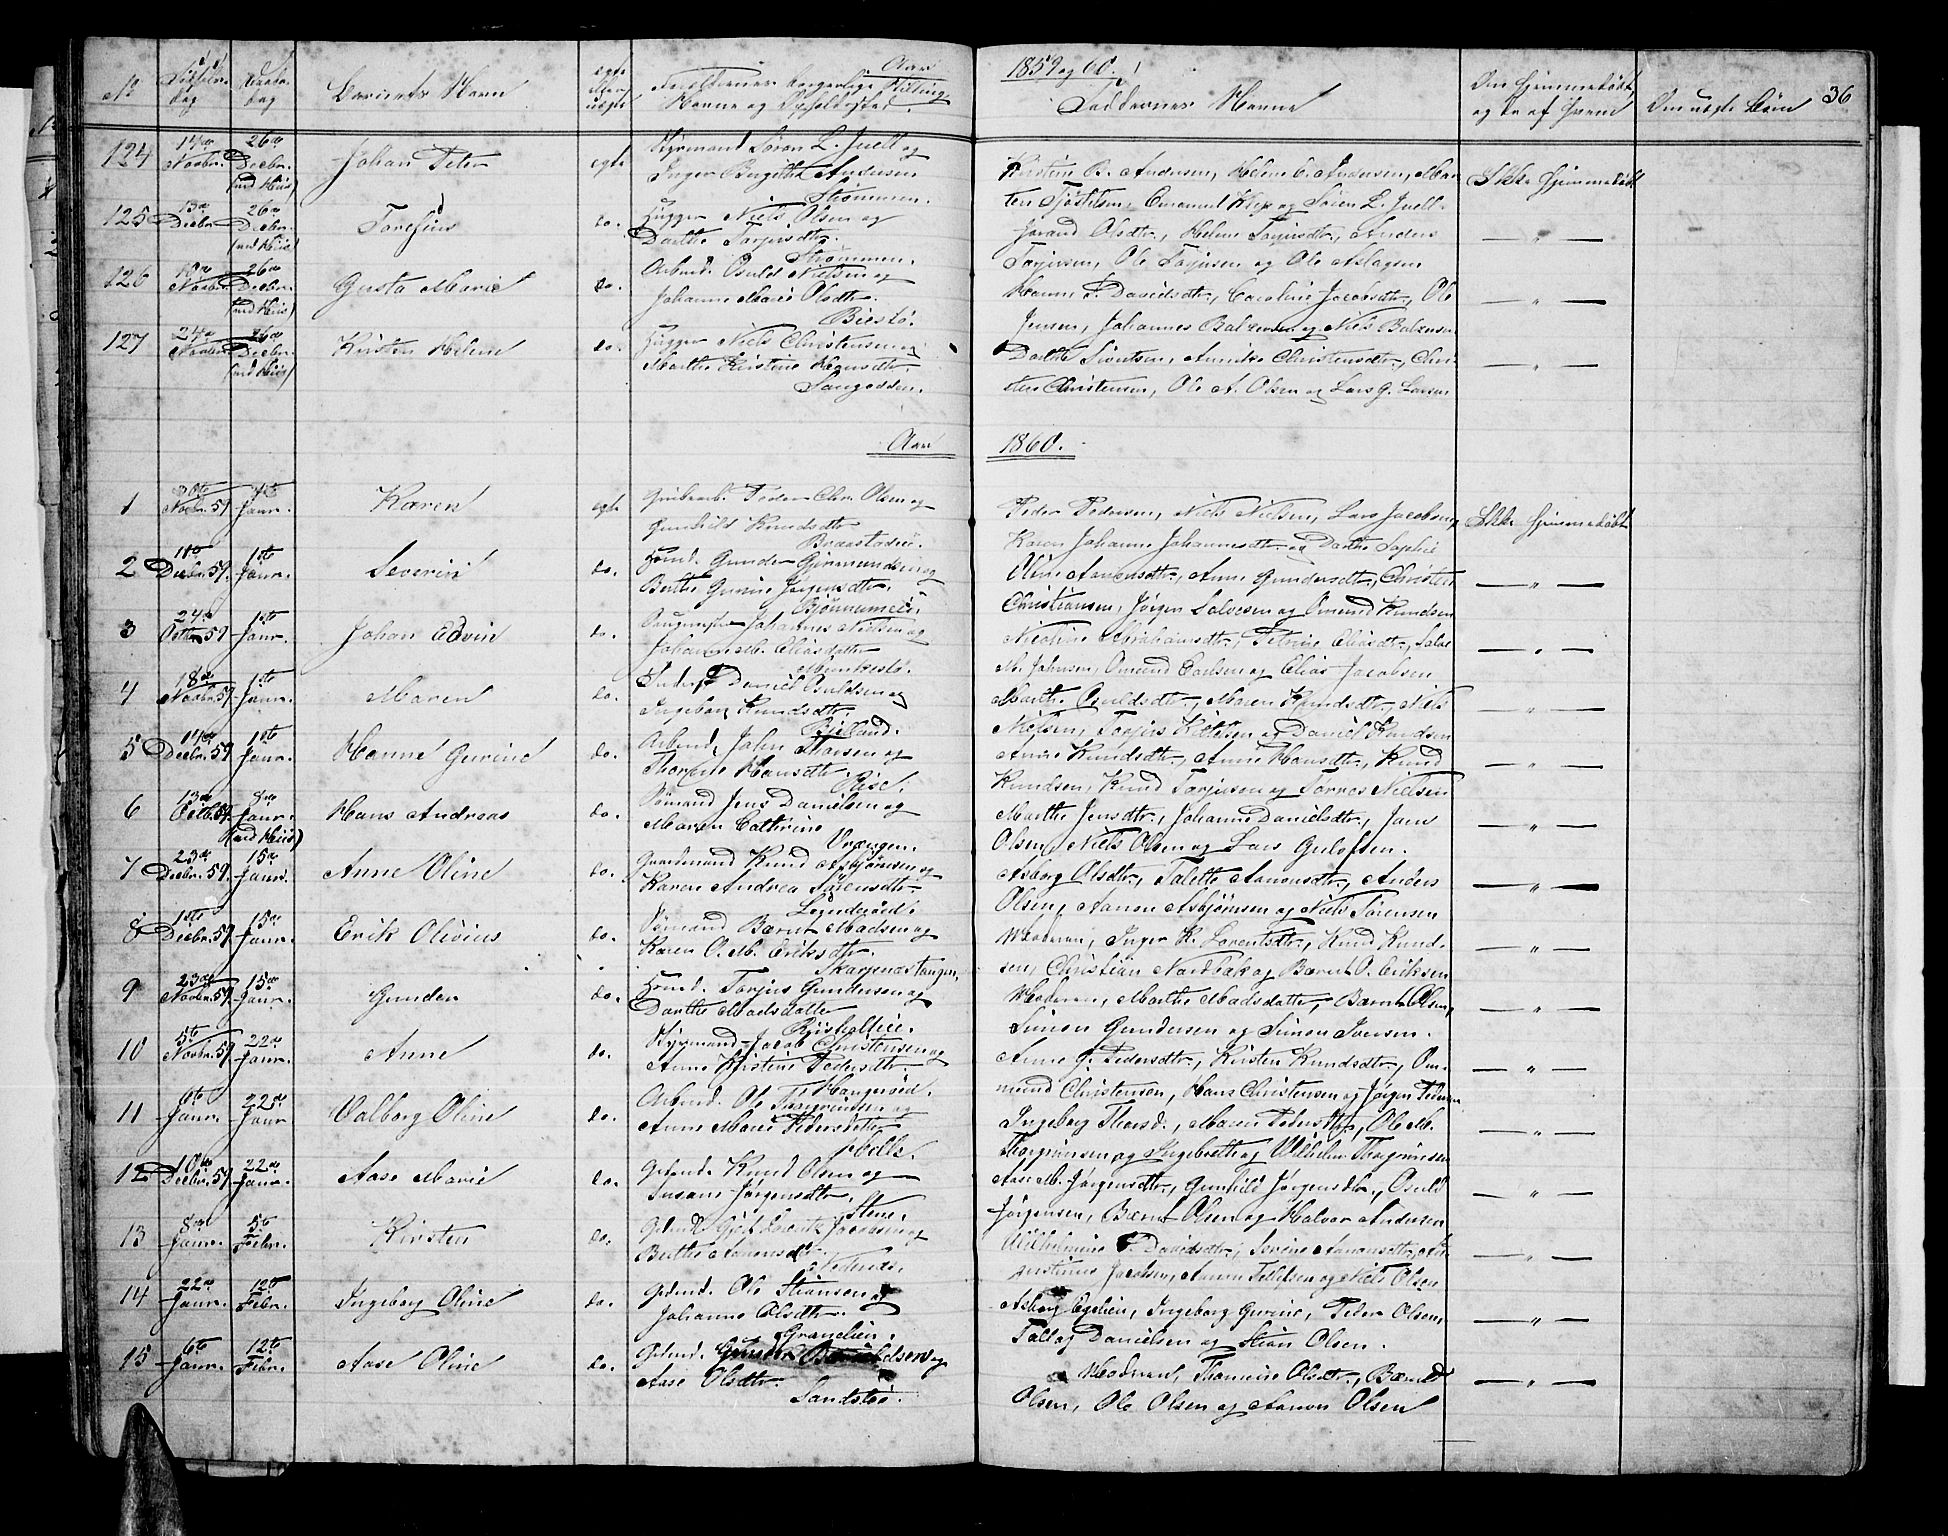 Aar 1859 og 60. 36
No Fødsels- dag Daabs- dag Barnets Navn egte eller uegte Forældrenes borgerlige Stilling, Navne og Opholdssted Faddernes Navne Om hjemmedøbt, og da af hvem Om uegte Børn
124 14de Novbr. 26de Decbr. (ved Hiis) Johan Peter egte Styrmand Søren L. Juell og
Inger Birgitte Andersen
Strømmen.
Kirstine B. Andersen, Helene C. Andersen, Mar-
ten Tjøstelsen, Emanuel Klep og Søren L. Juell.
Ikke hjemmedøbt
125 13de Decbr. 26de Decbr. (ved Hiis) Torefius do. Tugger Niels Olsen og
Dorthe Torjusdtr.
Strømmen.
Jorand Olsdtr., Helene Torjusdtr., Anders
Torjussen, Ole Torjusen og Ole Aslagsen
— " —
126 10de Novbr. 26de Decbr. (ved Hiis) Gusta Marie do. Arbmd. Osuld Nielsen og
Johanne Marie Olsdtr.
Biestø.
Hanne S. Davidsdtr., Caroline Jacobsdtr., Ole
Jensen, Johannes Balzersen og Niels Balzersen
— " —
127 24de Novbr. 26de Decbr. (ved Hiis) Kirsten Helene do. Tugger Niels Christensen og
Marthe Kirstine Hansdtr.
Langodden.
Dorthe Sivertsen, Annike Christensdtr., Chri-
sten Christensen, Ole A. Olsen og Lars G. Larsen
— " —
Aar 1860.
1 30te Novbr. 59 1ste Janr. Karen egte Peder Chr. Olsen og
Gunhild Knudsdtr.
Braastad.
Peder Pedersen, Niels Nielsen, Lars Jacobsen,
Karen Johanne Johannesdtr. og Dorthe Sophie
Ikke hjemmedøbt
2 11te Decbr. 59. 1ste Janr. Severin do. Gunder Gjermundsen og
Berthe Gurine Jørgensdtr.
Oline Aanonsdtr., Anne Gundersdtr., Christen
Christiansen, Jørgen Salvesen og Omund Knudsen
— " —
3 24de Octbr. 59 1ste Janr. Johan Edvin do. Johannes Nielsen og
Johanne M. Eliasdatter
Munkestø.
Nicoline Abrahamsdtr., Petrine Eliasdtr., Salve
M. Johnsen, Omund Carlsen og Elias Jacobsen
— " —
4 18de Novbr. 59 1ste Janr. Maren do. Inderst Daniel Osuldsen og
Ingeborg Knudsdtr.
Bjelland.
Marthe Osuldsdtr., Maren Knudsdtr., Niels
Nielsen, Torjus Kittelsen og Daniel Knudsen
— " —
5 14de Decbr. 59. 1ste Janr. Hanne Gurine do. Arbmd. John Thorsen og
Thorine Hansdtr.
Rise.
Anne Knudsdtr., Anne Hansdtr., Knud
Knudsen, Knud Torjusen og Tørres Nielsen
— " —
6 13de Octb. 59. 8de Janr. (ved Hiis) Hans Andreas do. Sømand Jens Danielsen og
Maren Cathrine
Vrængen.
Marthe Jensdtr., Johanne Danielsdtr., Jens
Olsen, Niels Olsen og Lars Gulofsen.
— " —
7 23de Decbr. 59. 15de Janr. Anne Oline do. Gaardmand Knud Asbjørnsen og
Karen Andrea Sørensdtr.
Løgnderød.
Asborg Olsdtr., Talette Aanonsdtr., Anders
Olsen, Aanon Asbjørnsen og Niels Sørensen
— " —
8 1ste Decbr. 59. 15de Janr. Erik Olevius do. Sømand Bærnt Madsen og
Karen O. M. Eriksdtr.
Skarpnæstangen.
Moderen, Inger K. Lorentsdtr., Knud Knud-
sen, Christian Nordbak og Bærnt O. Eriksen
— " —
9 23de Novbr. 59. 15de Janr. Gunder do. Torjus Gundersen og
Dorthe Madsdatter
Moderen, Marthe Madsdatter, Bærnt Olsen,
Simon Gundersen og Simon Iversen.
— " —
10 5te Novbr. 59. 22de Janr. Anne do. Styrmand Jacob Christensen og
Anne Kirstine Pedersdtr.
Haugerøid.
Anne G. Pedersdtr., Kirsten Knudsdtr., Om-
mund Christensen, Hans Christensen og Jørgen Pedersen
— " —
11 6te Janr. 22de Janr Valborg Oline do. Arbmd. Ole Thorgrimsen og
Anne Marie Pedersdatter
Ingeborg Thorsd., Maren Pedersdtr., Ole M.
Thorgrimsen og Ingebreth og Wilhelm Thorgrimsen
— " —
12 10de Decbr. 59. 22de Janr. Aase Marie do. Gdmd. Knud Olsen og
Susane Jørgensdtr.
Stene.
Aase M. Jørgensdtr., Gunhild Jørgensdtr., Osuld
Jørgensen, Bærnt Olsen og Halvor Andersen
— " —
13 8de Janr. 5te Febr. Kirsten do. Lorentz Jacobsen og
Berthe Aanonsdt.
Nedenæs.
Wilhelmine S. Davidsdtr., Serine Aanonsdtr., Au-
gustinus Jacobsen, Aanon Tellefsen og Niels Olsen
— " —
14 22de Janr. 12te Febr. Ingeborg Oline do. Gdmd. Ole Stiansen og
Johanne Olsdtr.
Granelien.
Asborg Egelien, Ingeborg Gurine, Peder Olsen,
Tallag Danielsen og Stian Olsen.
— " —
15 6te Janr. 12te Febr. Aase Oline do. Gdmd. Gunder Bærntsen og
Aase Olsdtr.
Sandstø.
Moderen, Thomine Olsdtr., Bærnt
Olsen, Ole Olsen og Aanon Olsen
— " —